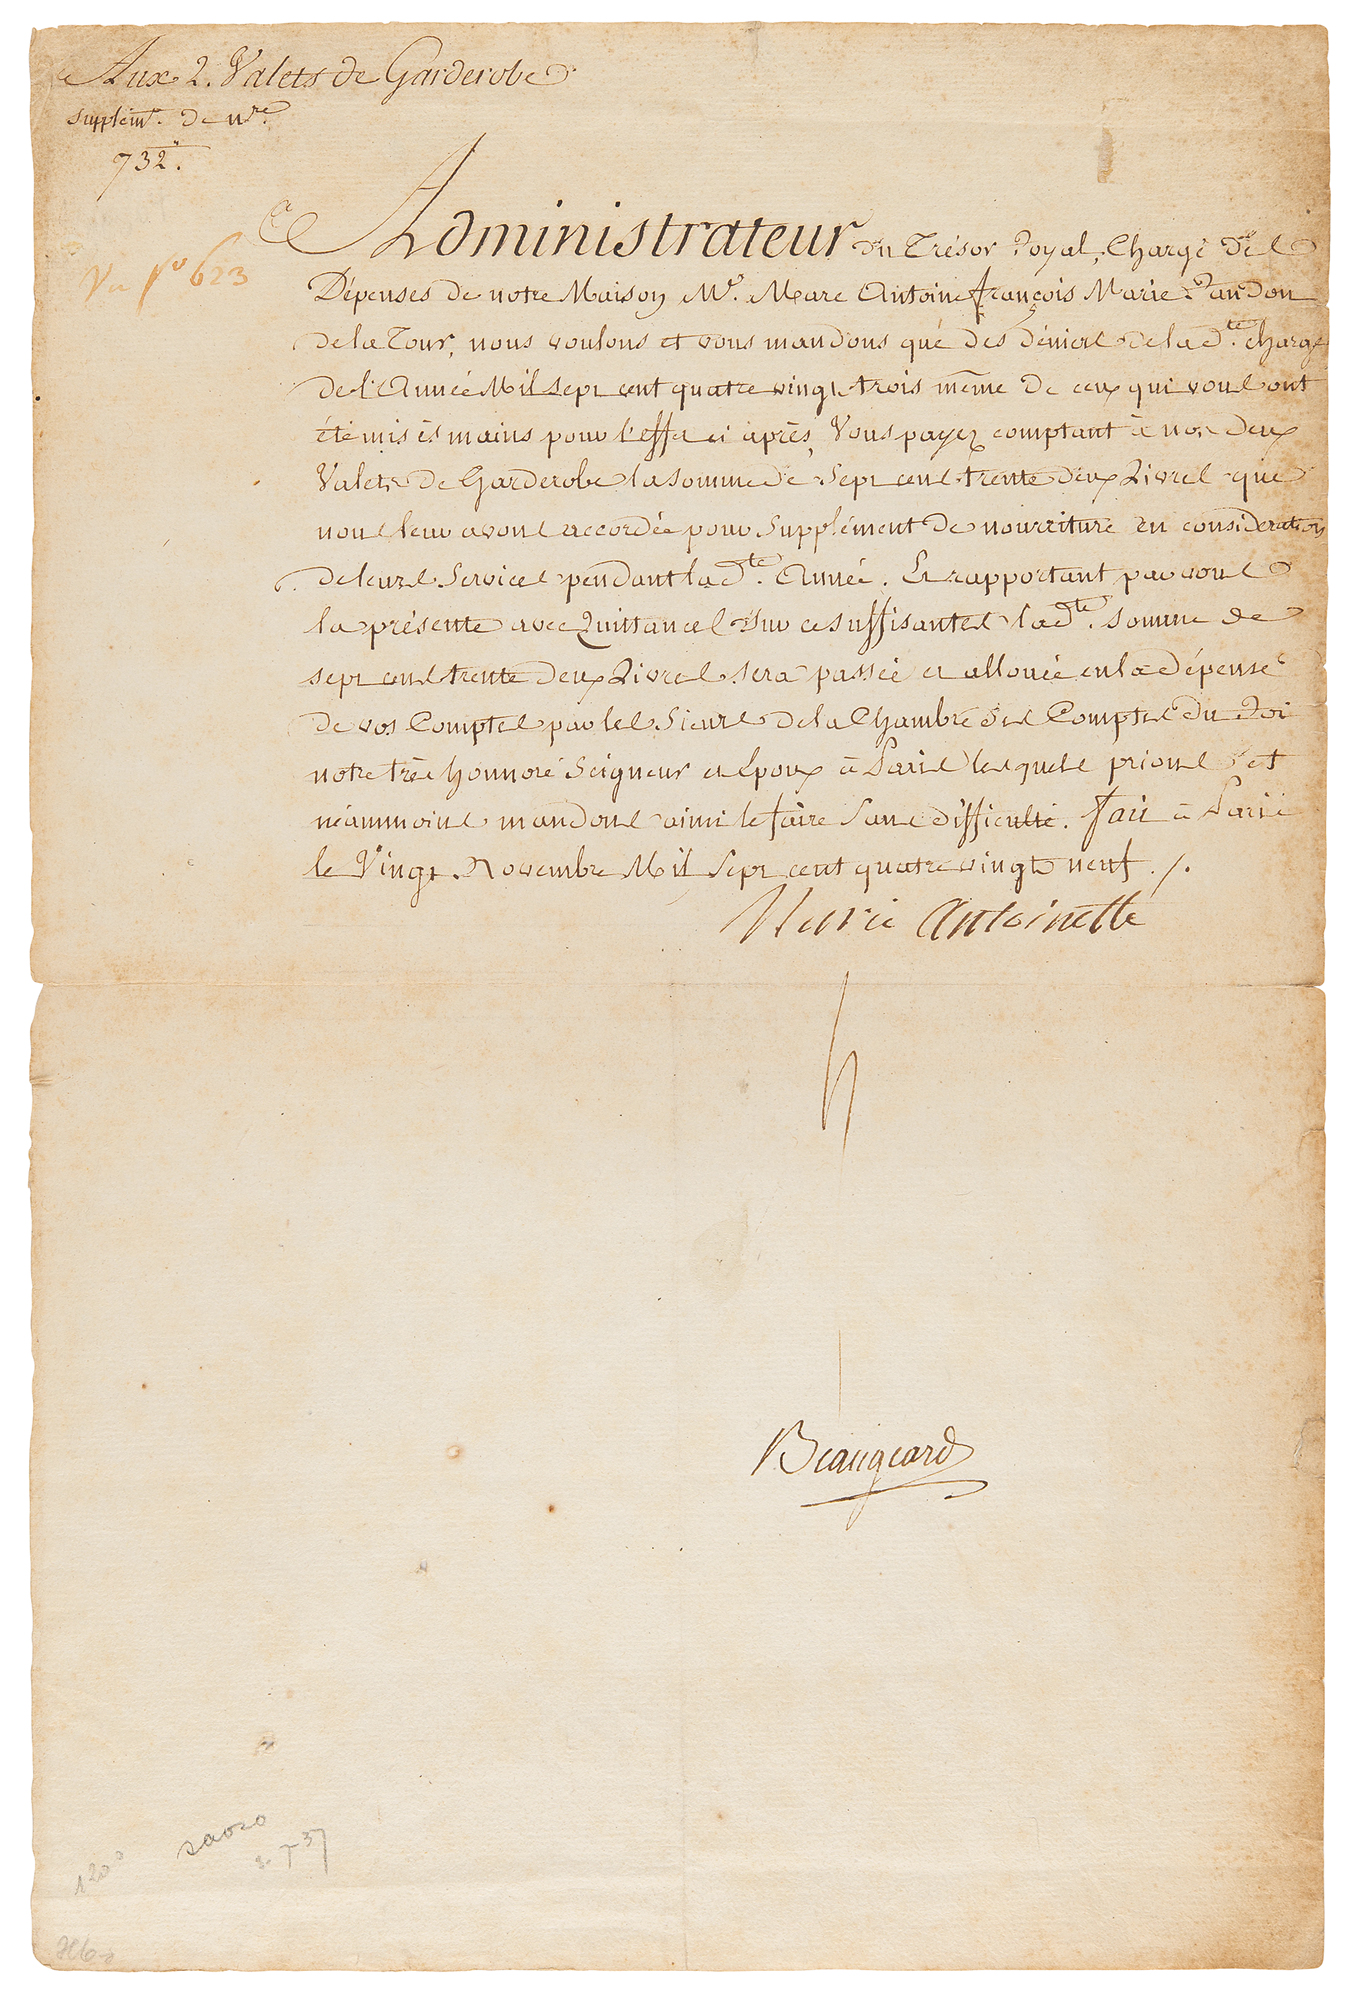 Aux 2. Valets de Garderobe
supplemt. de nre.
732".
Vu fo 623
Administrateur du Trésor Royal, Chargé des
Dépenses de notre Maison Mr. Marc Antoine françois Marie Randon
de la Tour, nous voulons et vous mandons que des deniers de la dte. charge
de l'Année Mil sept cent quatre vingt trois même de ceux qui vous ont
été mis ès mains pour l'effet ci après, Vous payez comptant à nos deux
Valets de Garderobe la somme de sept cent trente deux Livres que
nous leur avons accordée pour supplément de nourriture en consideration
de leurs services pendant la dte. Année. Et rapportant par vous
la présente avec Quittances sur ce suffisantes lade. somme de
sept cent trente deux Livres sera passée et allouée en la dépense
de vos Comptes par les Sieurs de la Chambre des Comptes du Roi
notre très honnoré Seigneur et Epoux à Paris lesquels prions et
néanmoins mandons ainsi le faire sans difficulté. fait à Paris
le Vingt Novembre Mil Sept cent quatre vingt neuf ./.
Marie Antoinette
Beaugeard